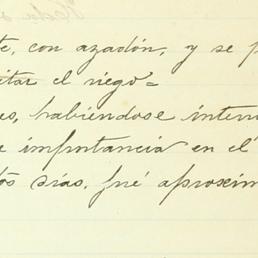 te, con azadón, y se p
itar el riego=
es, habiéndose intern
e importancia en el
tos días, fué aproxim